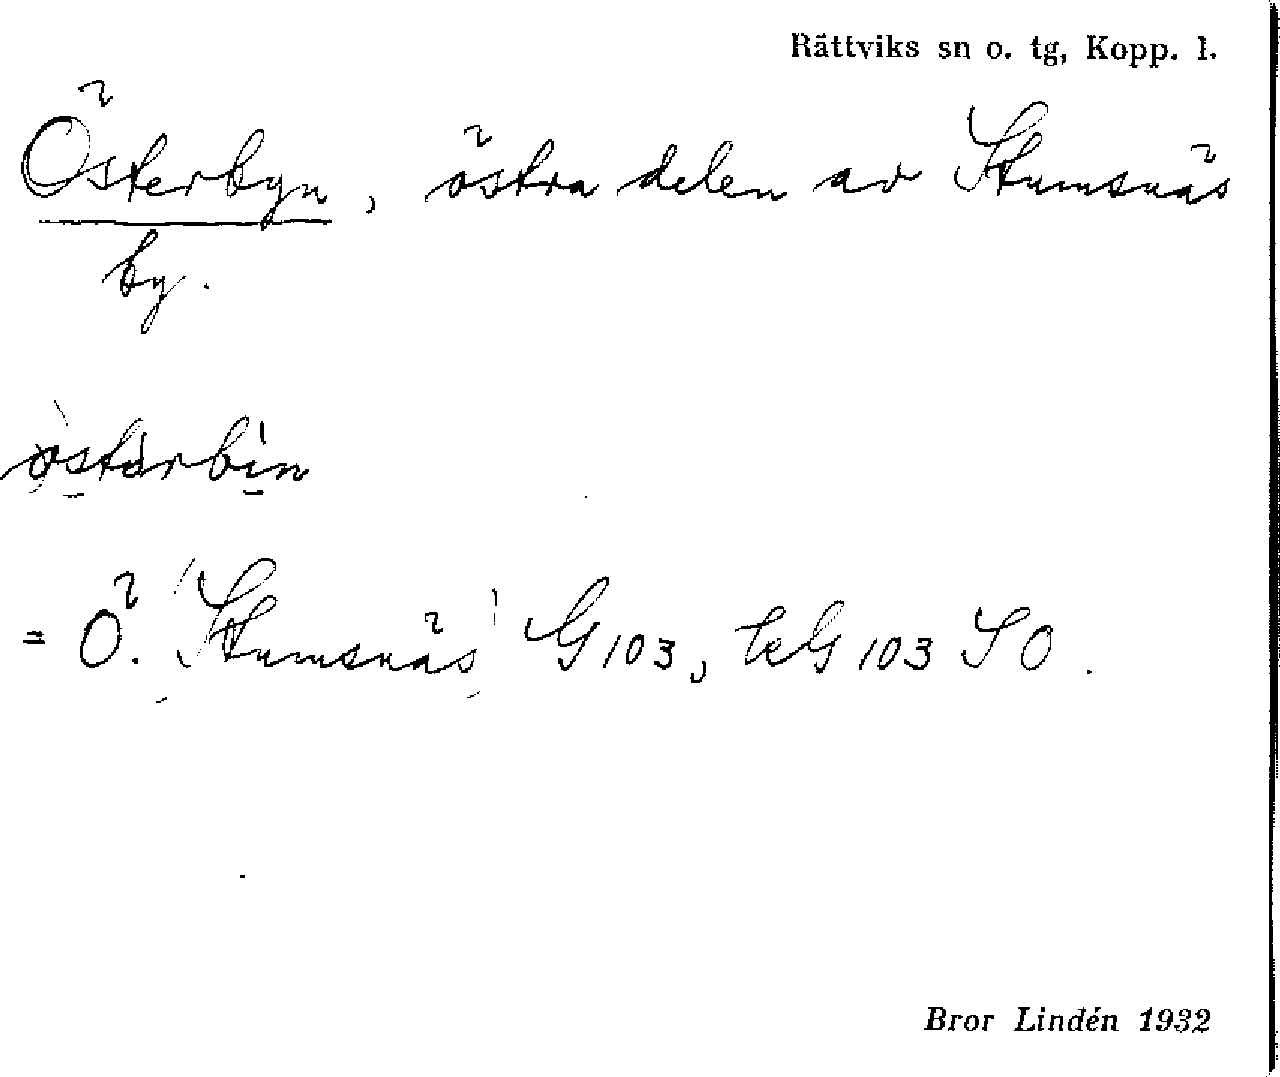 Rättviks sn o. tg, Kopp. l.
Österbyn, östra delen av Stumsnäs
by.
östärbin
= Ö. Stumsnäs G 103, teG 103 SO.
Bror Lindén 1932